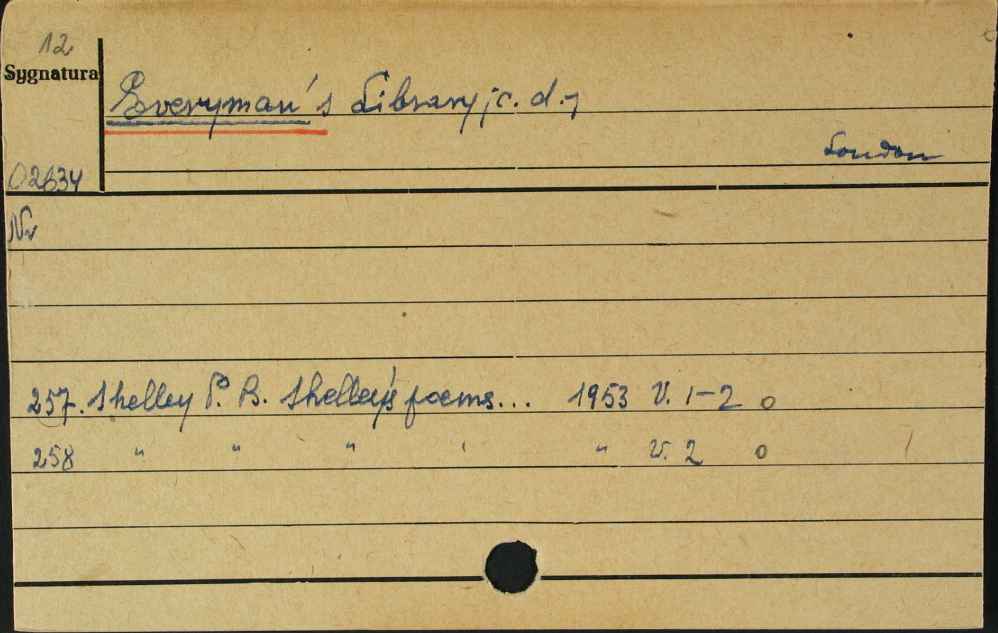 12
Sygnatura
Everyman's Library; c. d.
London
02634
Nr
257. Shelley P. B. Shelley's poems... 1953 V. 1-2 o
258 " " " " " V. 2 o